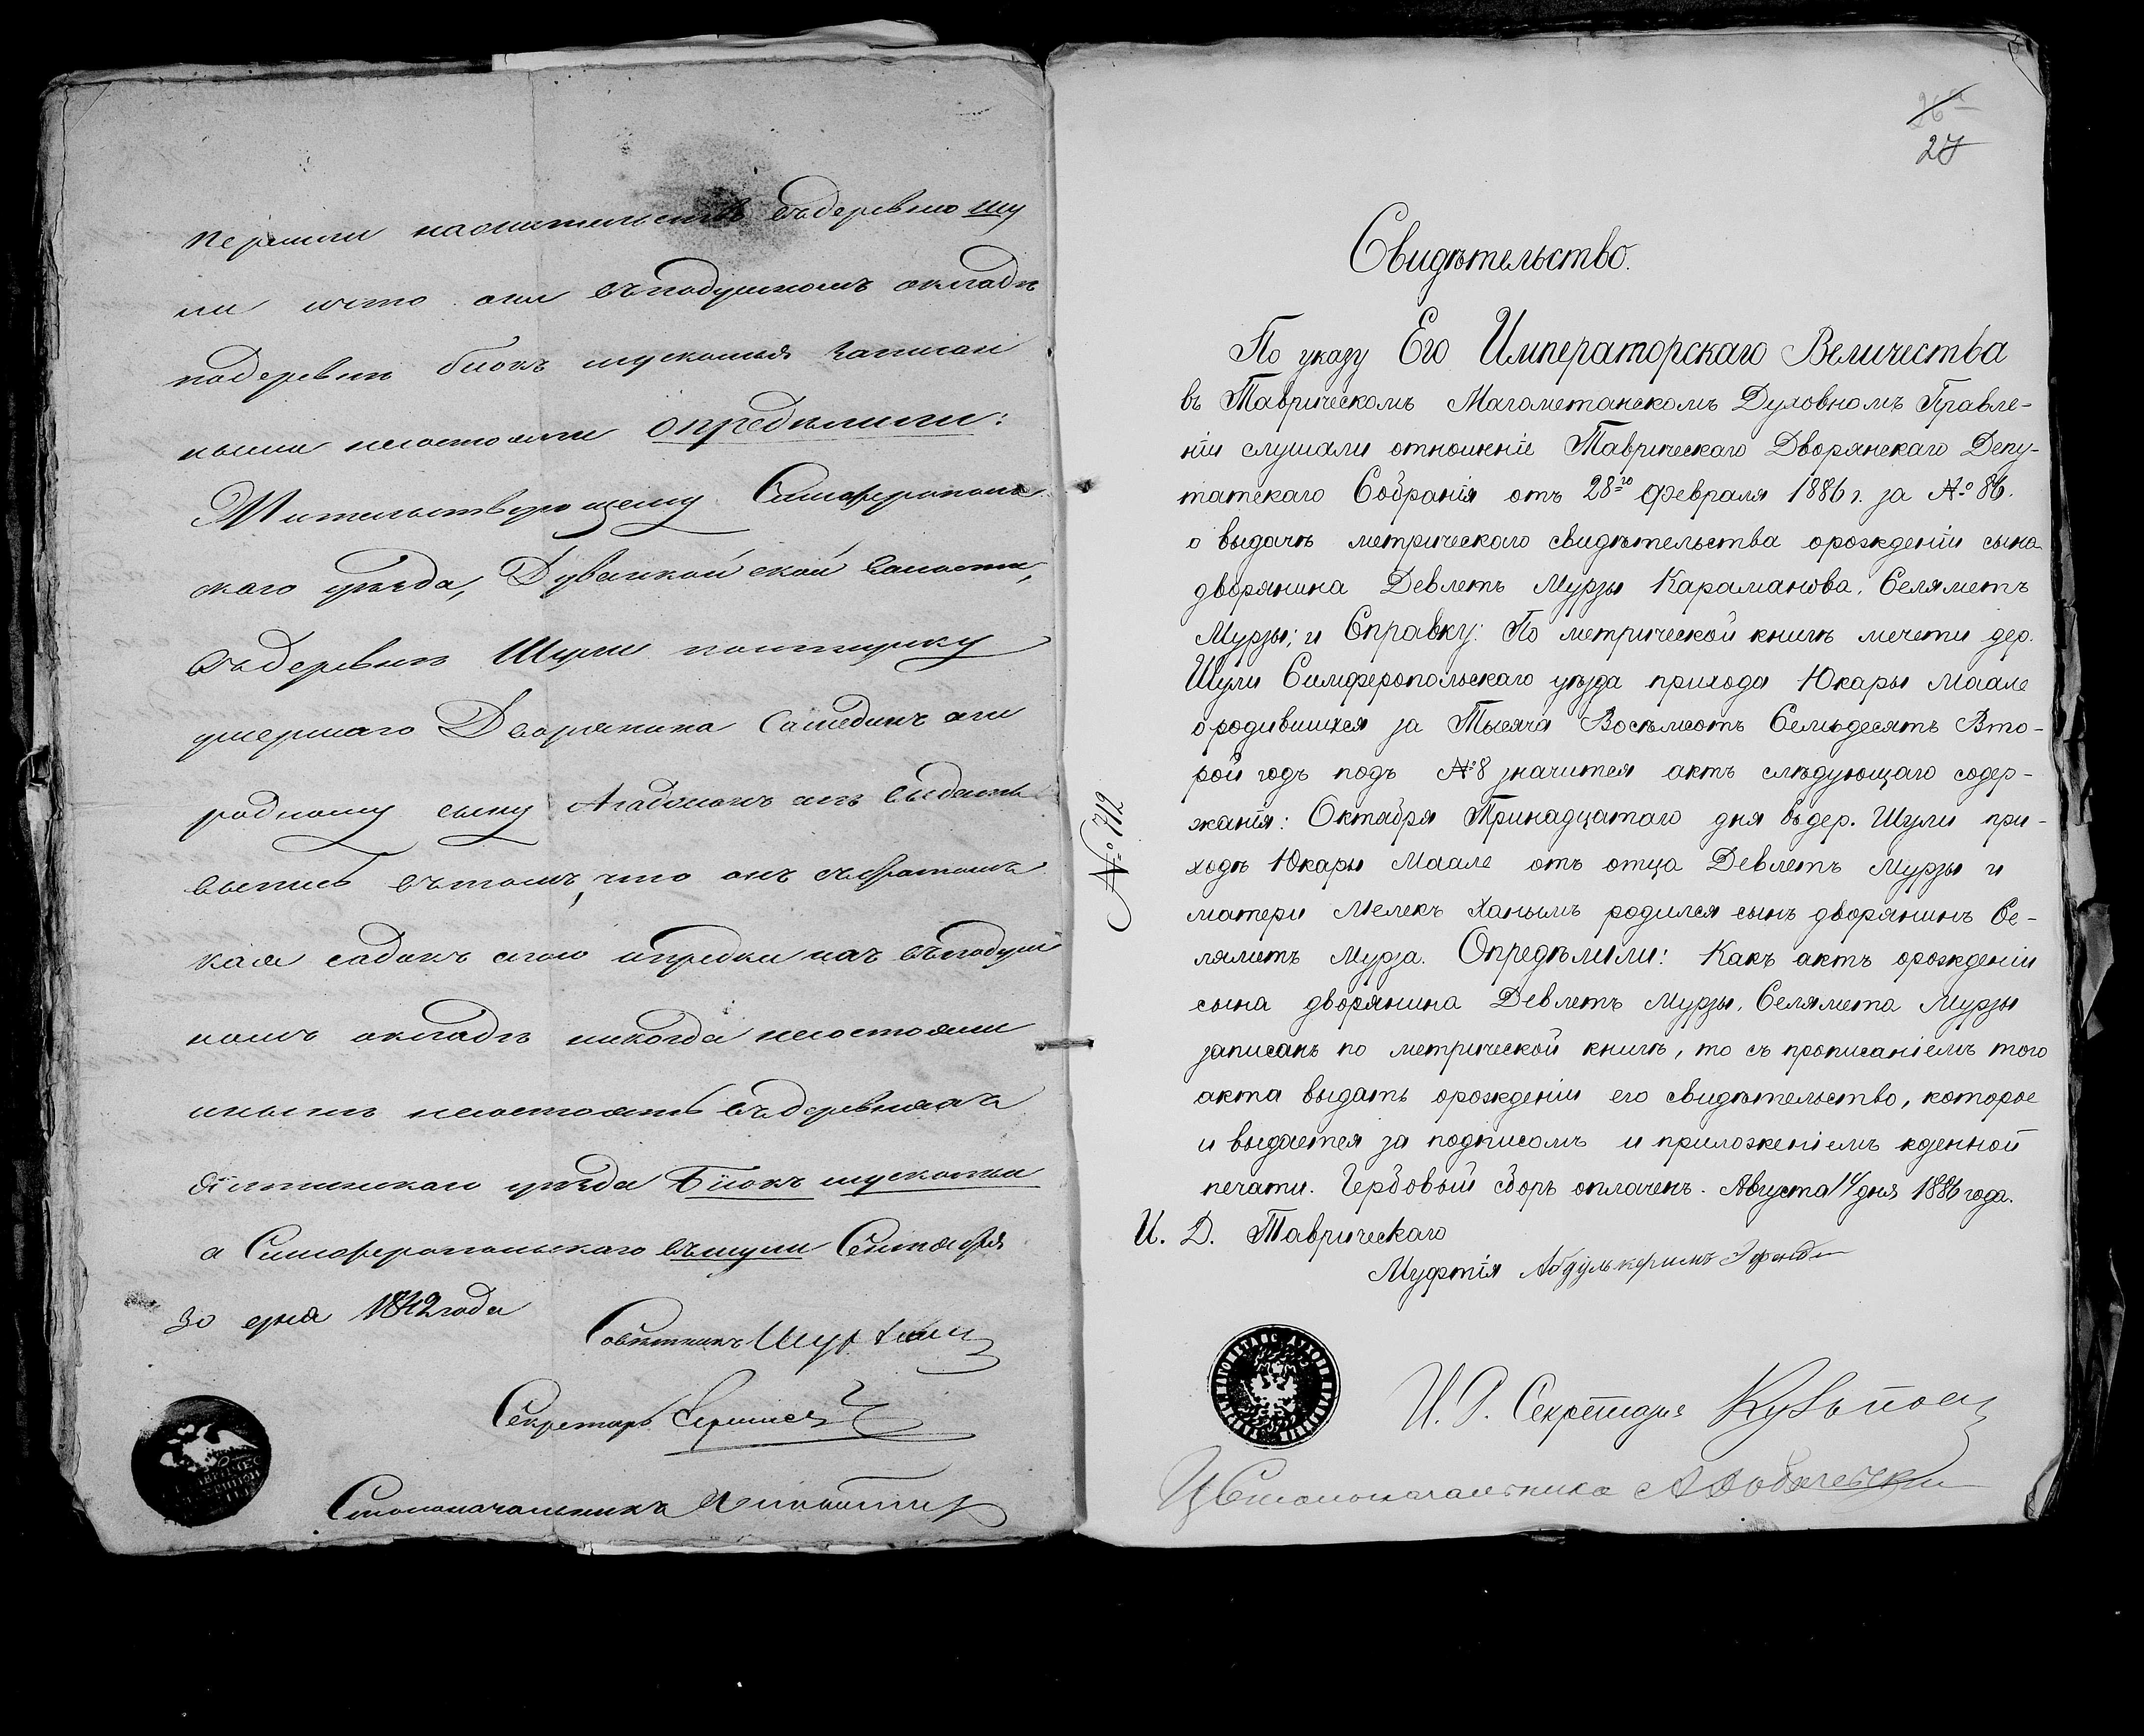 перешли на жительство въ деревню Шу
ли и что они въ подушномъ окладе
по деревне биюкъ мускомья записан
ными не состояли определили:
Жительствующему Симферополь
скаго уезда, Дуванкойской волости,
въ деревне Шули помещику
умершаго Дворянина Сашединъ аги
родному сыну выдать
въ томъ, что онъ съ братомъ
Кая садыкъ агою и предки ихъ въ подуш
номъ окладе никогда не состояли
и ныне не состоятъ въ деревняхъ
Ялтинскаго уезда Биюкъ мускомьи
а Симферопольскаго въ шули Сентября
30 дня 1842 года
Советникъ
Секретарь
Столоначальникъ
27
Свидѣтельство.
По указу Его Императорскаго Величества
въ Таврическомъ Магометанскомъ Духовномъ Правле-
ніи слушали отношеніе Таврическаго Дворянскаго Депу-
татскаго Собранія отъ 28го Февраля 1886 г. за № 86.
о выдачѣ метрическаго свидѣтельства о рожденіи сына
дворянина Девлетъ Мурзы Караманова, Селяметъ
Мурзы; и Справку: По метрической книгѣ мечети дер.
Шули Симферопольскаго уѣзда прихода Юкары Маале
о родившихся за Тысяча Восьмсотъ Семьдесятъ Вто-
рой годъ подъ №8 значится актъ слѣдующаго содер-
жанія: Октября Тринадцатаго дня въ дер. Шули при-
ходѣ Юкары Маале отъ отца Девлетъ Мурзы и
матери Мелекъ Ханымъ родился сынъ дворянинъ Се-
ляметъ Мурза. Опредѣлили: Какъ актъ о рожденіи
сына дворянина Девлетъ Мурзы, Селямета Мурзы
записанъ по метрической книгѣ, то съ прописаніемъ того
акта выдать о рожденіи его свидѣтельство, которое
и выдается за подписомъ и приложеніемъ казенной
печати. Гербовый сборъ оплаченъ. Августа 14 дня 1886 года.
№ 712
И. Д. Таврическаго
Муфтія Абдулькеримъ Эфенди
И. Д. Секретаря
Столоначальника